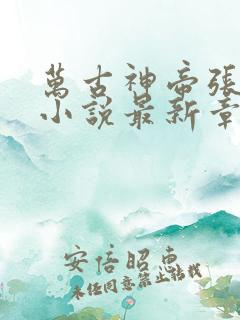 萬古神帝張
小說最新章
安倍昭惠
未经同意禁止转载